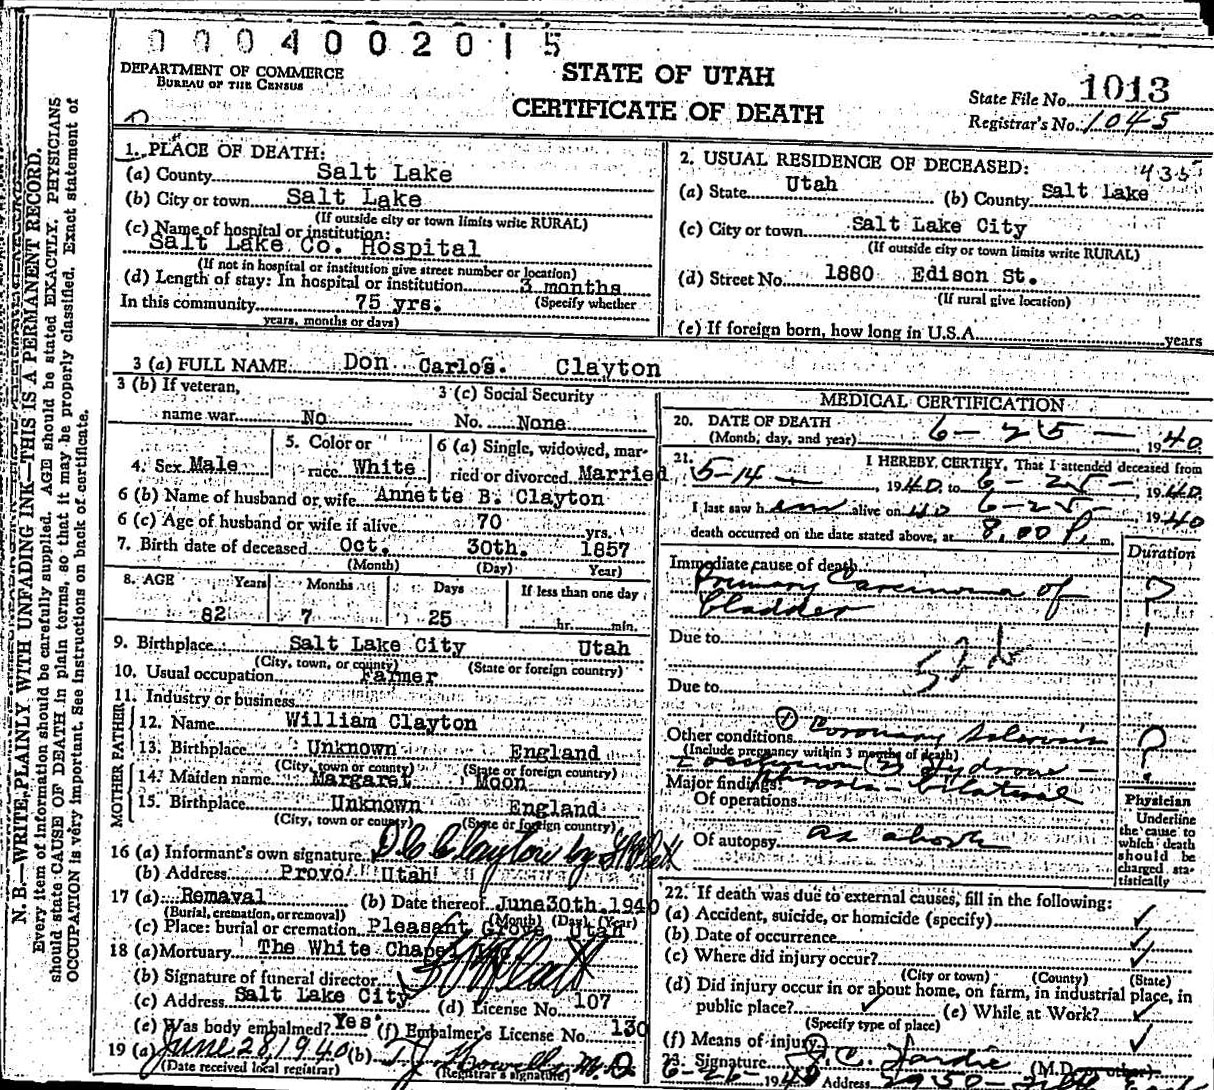 0 0 0 4 0 0 2 0 1 5
DEPARTMENT OF COMMERCE
BUREAU OF THE CENSUS
STATE OF UTAH
CERTIFICATE OF DEATH
State File No. 1013
Registrar's No. 1045
N. B.—WRITE PLAINLY, WITH UNFADING INK—THIS IS A PERMANENT RECORD.
Every item of information should be carefully supplied. AGE should be stated EXACTLY. PHYSICIANS
should state CAUSE OF DEATH in plain terms, so that it may be properly classified. Exact statement of
OCCUPATION is very important. See instructions on back of certificate.
1. PLACE OF DEATH:
(a) County Salt Lake
(b) City or town Salt Lake
(If outside city or town limits write RURAL)
(c) Name of hospital or institution:
Salt Lake Co. Hospital
(If not in hospital or institution give street number or location)
(d) Length of stay: In hospital or institution 3 months
In this community 75 yrs. (Specify whether
years, months or days)
2. USUAL RESIDENCE OF DECEASED: 435
(a) State Utah (b) County Salt Lake
(c) City or town Salt Lake City
(If outside city or town limits write RURAL)
(d) Street No. 1880 Edison St.
(If rural give location)
(e) If foreign born, how long in U.S.A. years
3 (a) FULL NAME Don Carlos Clayton
3 (b) If veteran, 3 (c) Social Security
name war No No. None
4. Sex Male 5. Color or race White 6 (a) Single, widowed, married or divorced Married
6 (b) Name of husband or wife Annette B. Clayton
6 (c) Age of husband or wife if alive 70 yrs.
7. Birth date of deceased Oct. 30th. 1857
(Month) (Day) Year)
8. AGE Years Months Days If less than one day
82 7 25 hr. min.
9. Birthplace Salt Lake City Utah
(City, town, or county) (State or foreign country)
10. Usual occupation Farmer
11. Industry or business
FATHER
12. Name William Clayton
13. Birthplace Unknown England
(City, town or county) (State or foreign country)
MOTHER
14. Maiden name Margaret Moon
15. Birthplace Unknown England
(City, town or county) (State or foreign country)
16 (a) Informant's own signature D C Clayton by
(b) Address Provo Utah
17 (a) Remaval (b) Date thereof June 30th. 1940
(Burial, cremation, or removal) (Month) (Day) (Year)
(c) Place: burial or cremation Pleasant Grove Utah
18 (a) Mortuary The White Chapel
(b) Signature of funeral director
(c) Address Salt Lake City (d) License No. 107
(e) Was body embalmed? Yes (f) Embalmer's License No. 130
19 (a) June 28, 1940 (b) T. J. Howells, M.D.
(Date received local registrar) (Registrar's signature)
MEDICAL CERTIFICATION
20. DATE OF DEATH
(Month, day, and year) 6-25- 1940
21. I HEREBY CERTIFY, That I attended deceased from
5-14- 1940 to 6-25- 1940
I last saw him alive on 6-25- 1940
death occurred on the date stated above, at 8:00 P. m.
Immediate cause of death Duration
Primary Carcinoma of ?
bladder
Due to
Due to
Other conditions (1) Coronary Sclerosis ?
(Include pregnancy within 3 months of death)
+ occlusion (2) Hydrone-
Major findings: phrosis - bilateral
Of operations
Of autopsy as above
Physician
Underline
the cause to
which death
should be
charged statistically
22. If death was due to external causes, fill in the following:
(a) Accident, suicide, or homicide (specify) ✓
(b) Date of occurrence ✓
(c) Where did injury occur? ✓
(City or town) (County) (State)
(d) Did injury occur in or about home, on farm, in industrial place, in
public place? ✓ (e) While at Work? ✓
(Specify type of place)
(f) Means of injury ✓
23. Signature (M.D. or other)
6-26- 1940 Address